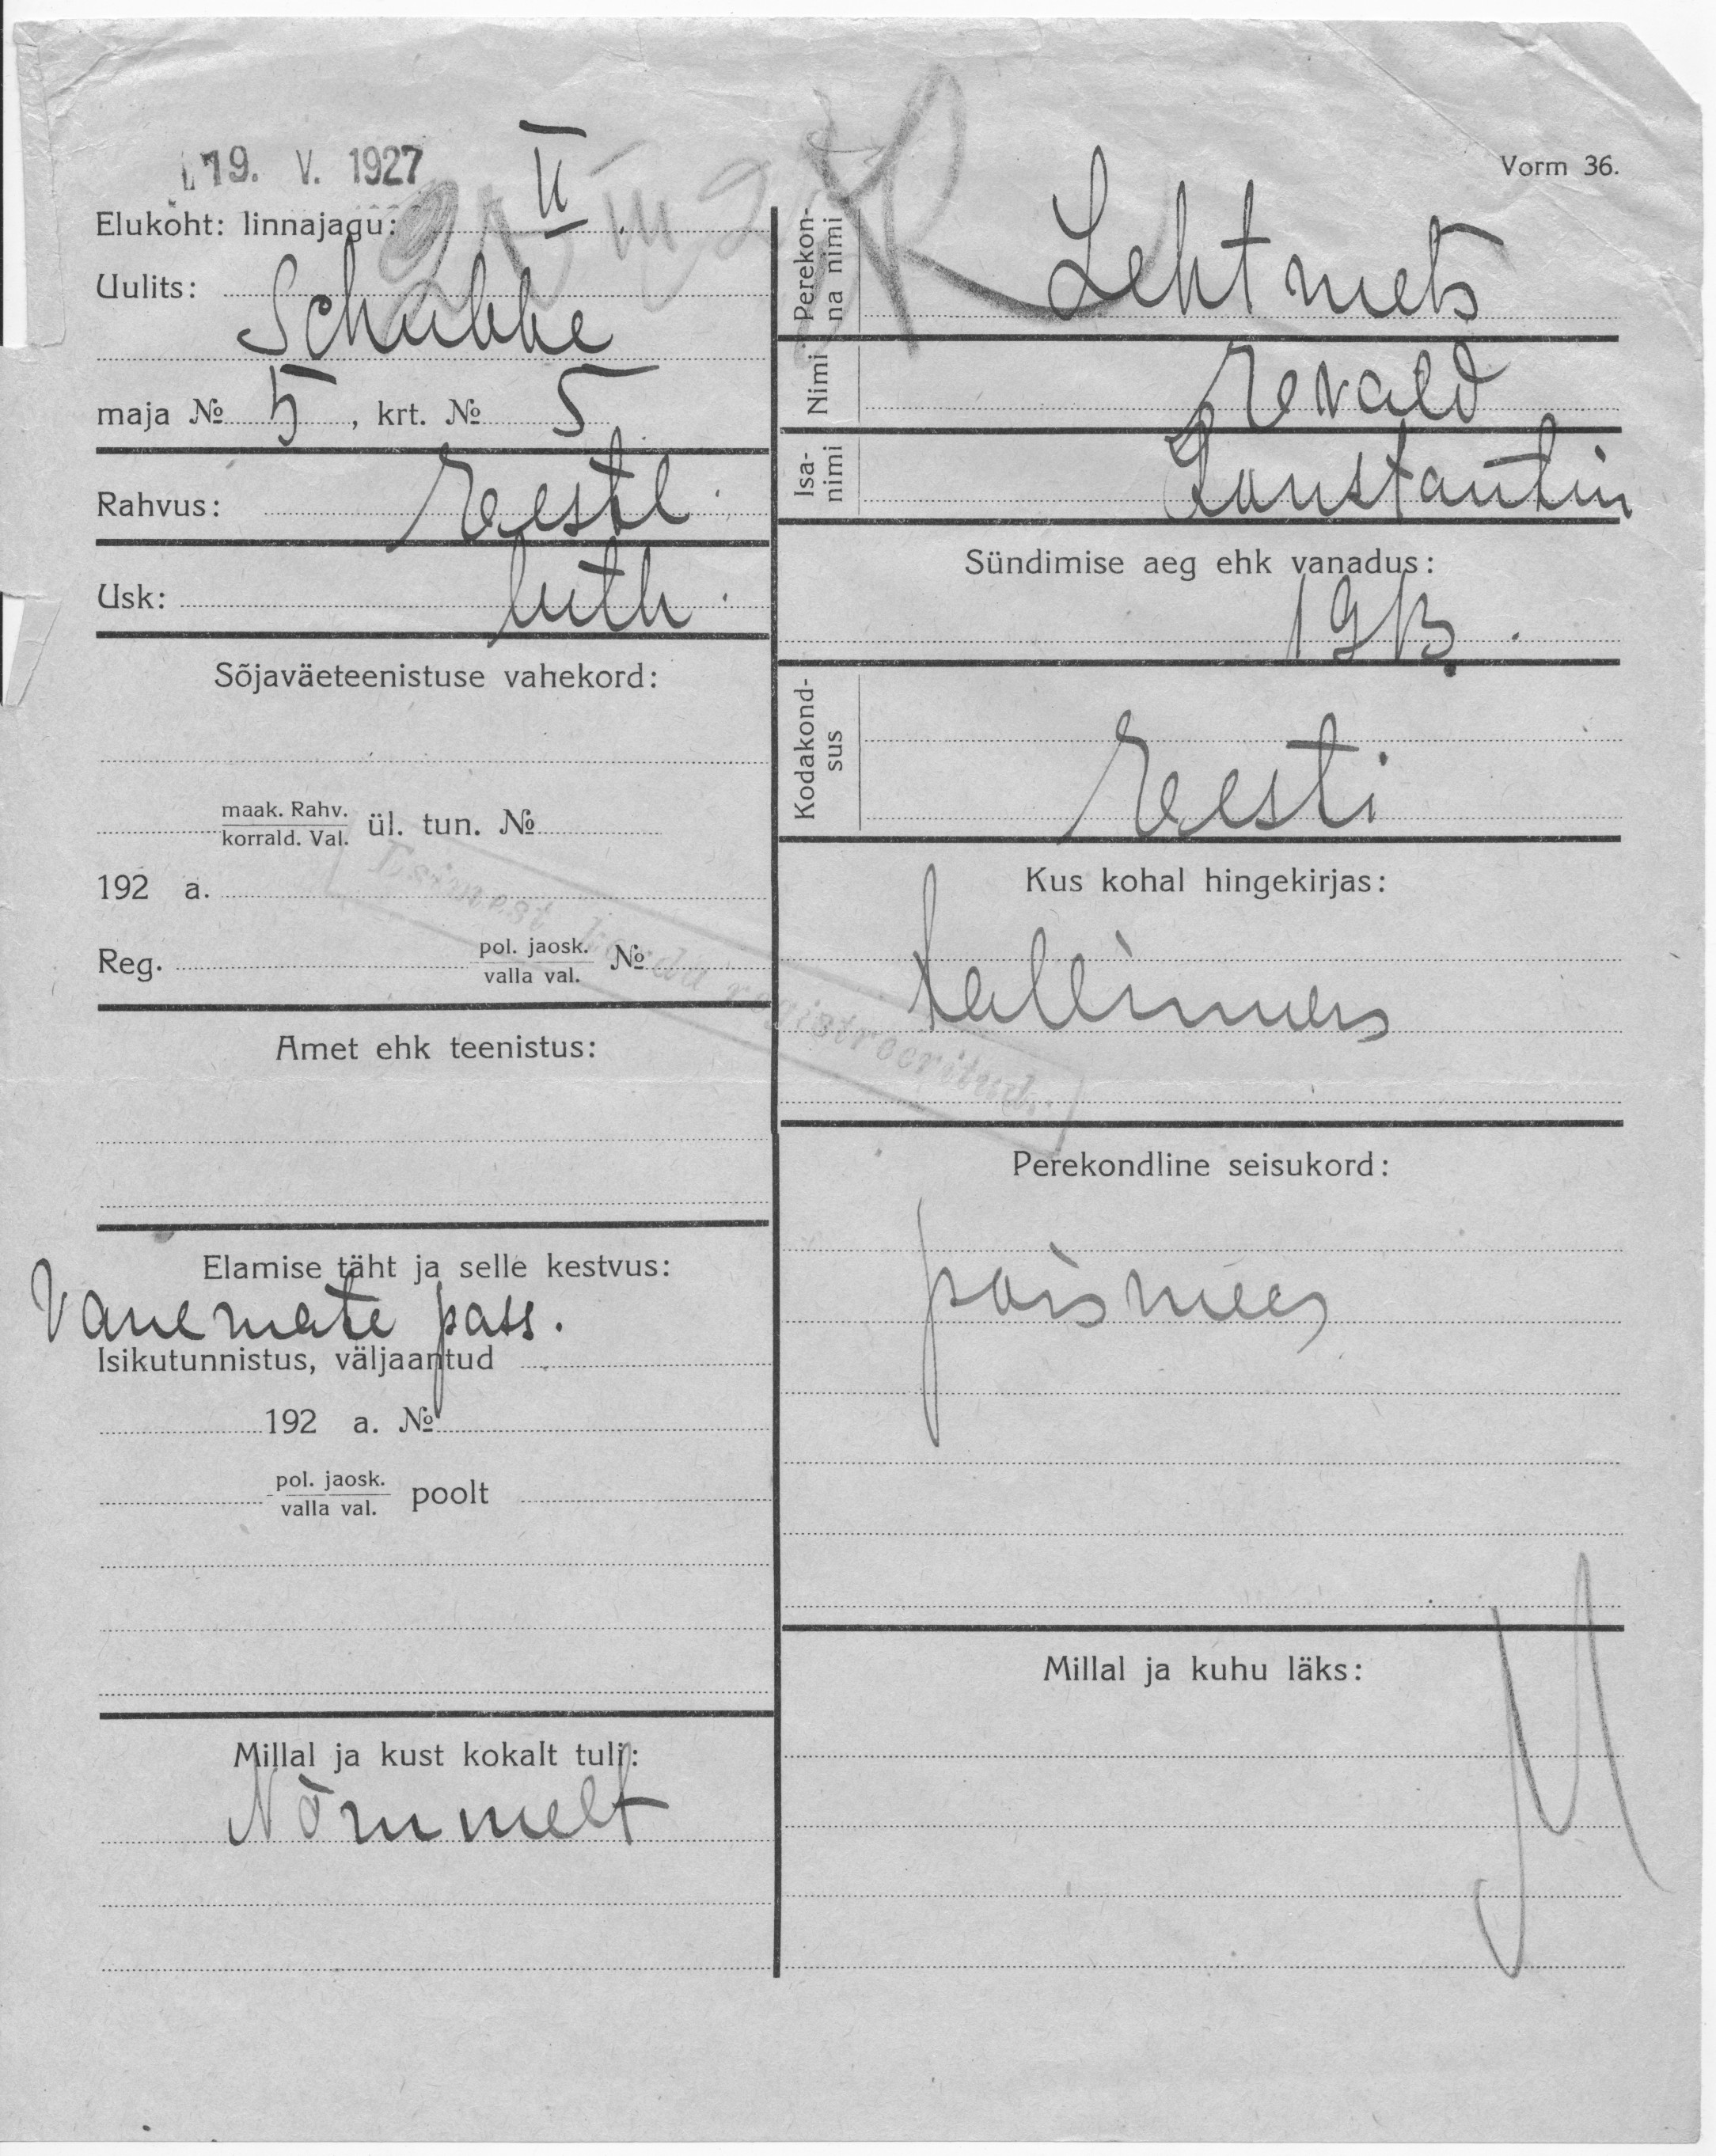 19. V. 1927
Vorm 36.
Elukoht: linnajagu: II
Uulits:
Schubbe
maja № 5, krt. № 5
Rahvus: Eesti
Usk: luth.
Sõjaväeteenistuse vahekord:
maak. Rahv.
korrald. Val. ül. tun. №
192 a.
Reg. pol. jaosk.
valla val. №
Amet ehk teenistus:
Elamise täht ja selle kestvus:
Vanemate pass.
Isikutunnistus, väljaantud
192 a. №
pol. jaosk.
valla val. poolt
Millal ja kust kokalt tuli:
Nõmmelt
Perekon-
na nimi Lehtmets
Nimi Evald
Isa-
nimi Konstantin
Sündimise aeg ehk vanadus:
1913.
Kodakond-
sus Eesti
Kus kohal hingekirjas:
tallinnas
Perekondline seisukord:
poismees
Millal ja kuhu läks:
Esimest korda registreeritud.